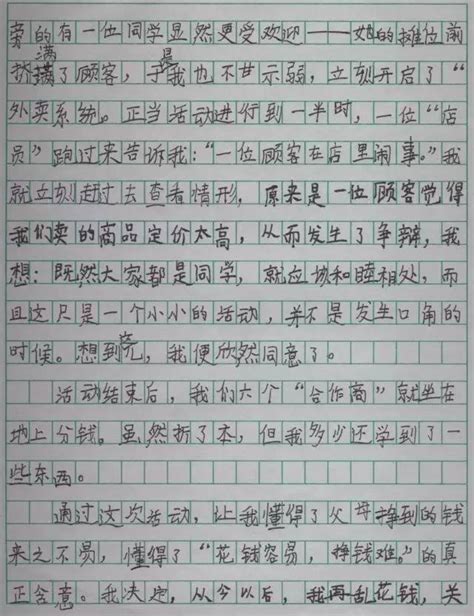 旁的有一位同学显然更受欢迎——她的摊位前
挤满了顾客，于是我也不甘示弱，立刻开启了“
外卖系统。正当活动进行到一半时，一位“店
员”跑过来告诉我：“一位顾客在店里闹事。”我
就立刻赶过去查看情形，原来是一位顾客觉得
我们卖的商品定价太高，从而发生了争辩，我
想：既然大家都是同学，就应该和睦相处，而
且这只是一个小小的活动，并不是发生口角的
时候。想到这儿，我便欣然同意了。
活动结束后，我们六个“合作商”就坐在
地上分钱。虽然折了本，但我多少还学到了一
些东西。
通过这次活动，让我懂得了父母挣到的钱
来之不易，懂得了“花钱容易，挣钱难。”的真
正含意。我决定，从今以后，我再乱花钱，关